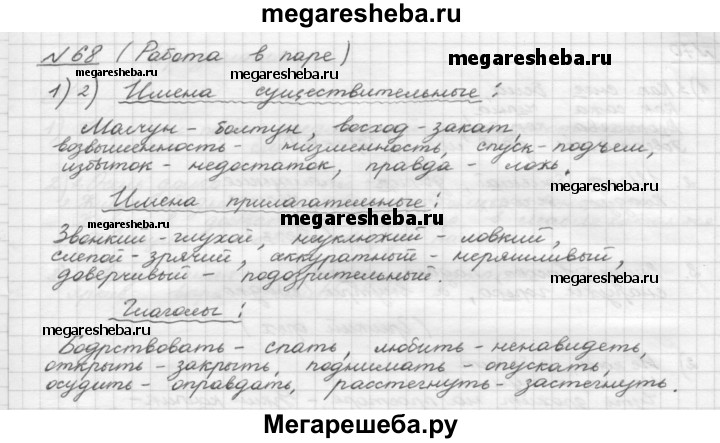 megaresheba.ru
№68 (Работа в паре)
megaresheba.ru
megaresheba.ru
1) 2) Имена существительные:
Молчун - болтун, восход - закат,
возвышенность - низменность, спуск - подъем,
избыток - недостаток, правда - ложь.
megaresheba.ru
megaresheba.ru
Имена прилагательные:
megaresheba.ru
Звонкий - глухой, неуклюжий - ловкий,
слепой - зрячий, аккуратный - неряшливый,
доверчивый - подозрительный.
megaresheba.ru
Глаголы:
megaresheba.ru
megaresheba.ru
Бодрствовать - спать, любить - ненавидеть,
открыть - закрыть, поднимать - опускать,
осудить - оправдать, расстегнуть - застегнуть.
Мегарешеба.ру